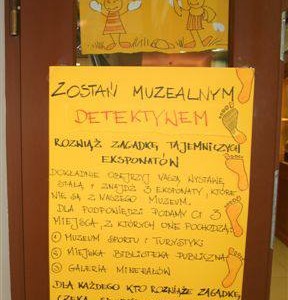 ZOSTAŃ MUZEALNYM
DETEKTYWEM
ROZWIĄŻ ZAGADKĘ TAJEMNICZYCH
EKSPONATÓW
DOKŁADNIE OBEJRZYJ NASZĄ WYSTAWĘ
STAŁĄ I ZNAJDŹ 3 EKSPONATY, KTÓRE
NIE SĄ Z NASZEGO MUZEUM.
DLA PODPOWIEDZI PODAMY CI 3
MIEJSCA, Z KTÓRYCH ONE POCHODZĄ:
1 MUZEUM SPORTU I TURYSTYKI
2 MIEJSKA BIBLIOTEKA PUBLICZNA
3 GALERIA MINERAŁÓW
DLA KAŻDEGO KTO ROZWIĄŻE ZAGADKĘ,
CZEKA